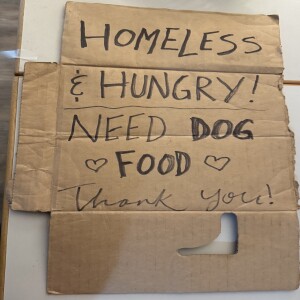 HOMELESS
& HUNGRY!
NEED DOG
♡ FOOD ♡
Thank you!